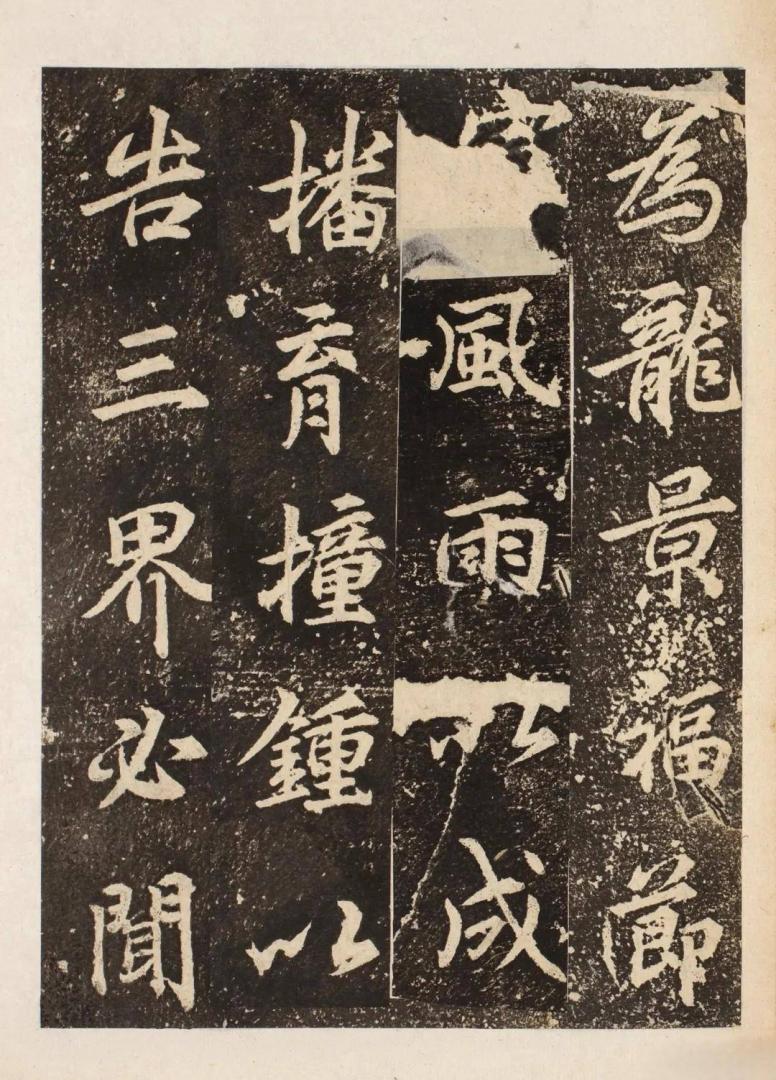 為龍景福節
風雨以成
播育撞鍾以
告三界必聞